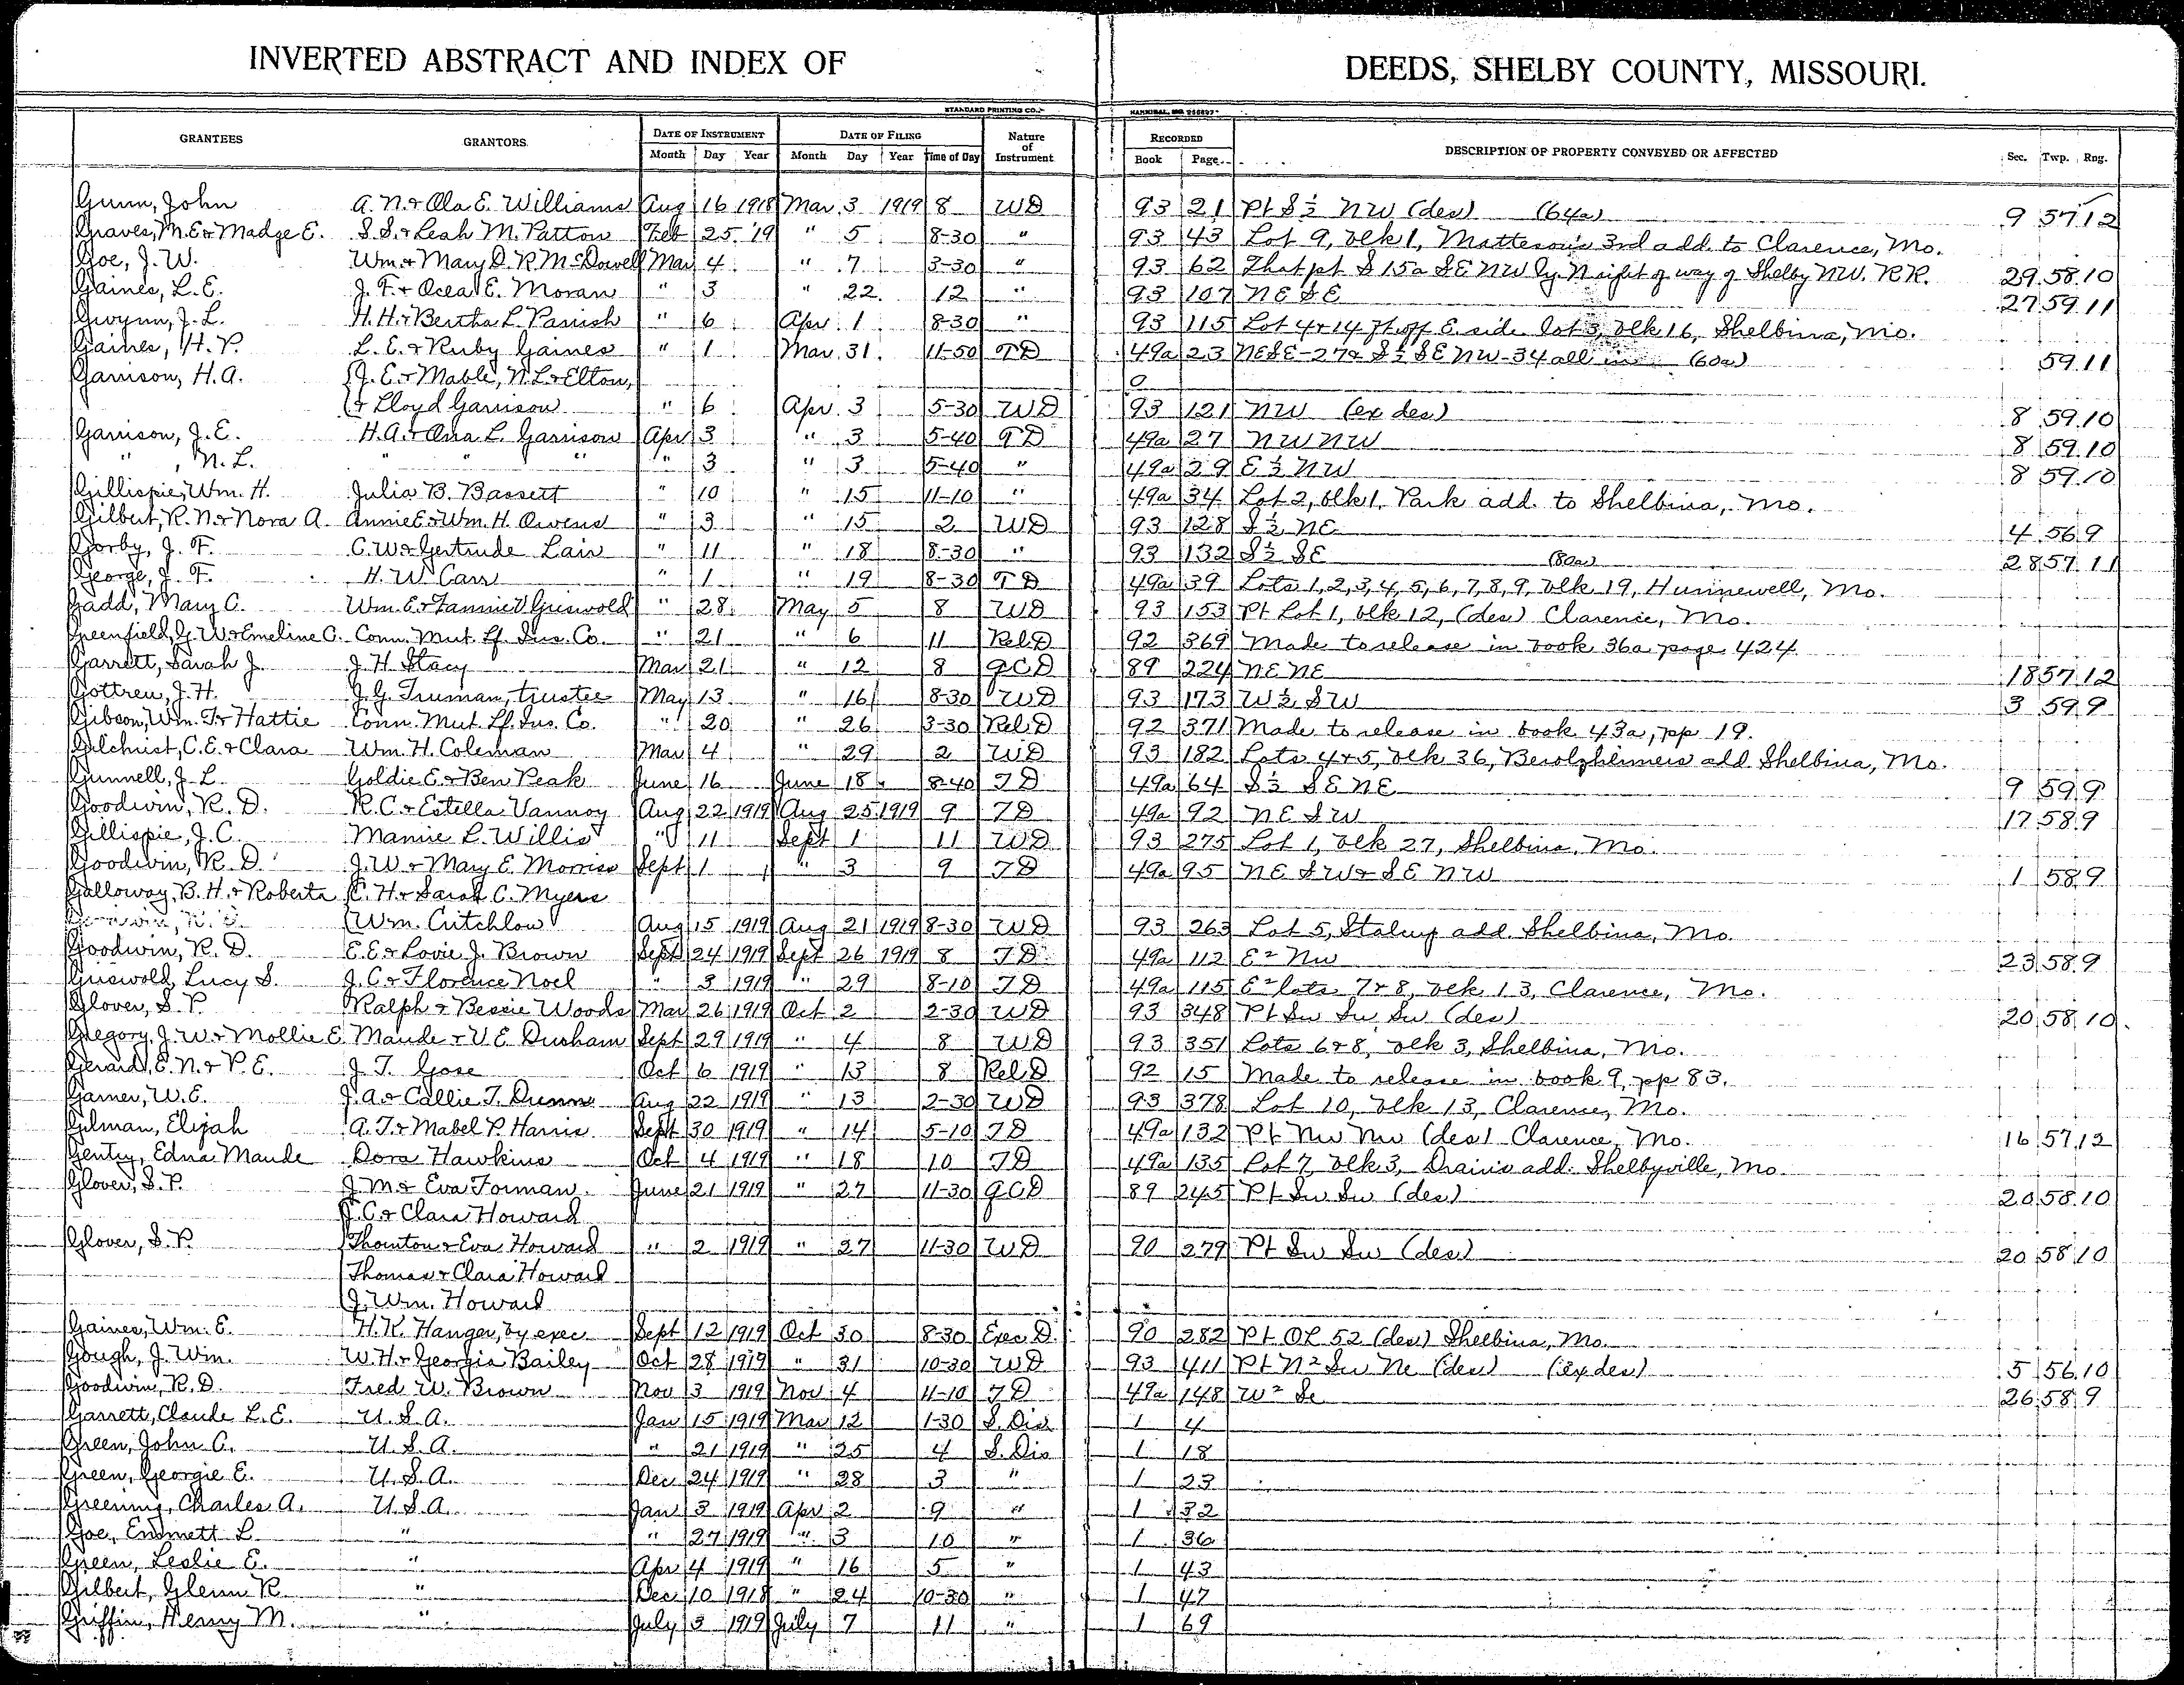 INVERTED ABSTRACT AND INDEX OF DEEDS, SHELBY COUNTY, MISSOURI.
STANDARD PRINTING CO., HANNIBAL, MO.
GRANTEES GRANTORS DATE OF INSTRUMENT DATE OF FILING Nature of Instrument RECORDED DESCRIPTION OF PROPERTY CONVEYED OR AFFECTED Sec. Twp. Rng.
Month Day Year Month Day Year Time of Day Book Page
Gunn, John A. N. + Ola E. Williams Aug 16 1918 Mar 3 1919 8 WD 93 21 Pt S½ NW (des) (64a) 9 57 12
Graves, M. E. + Madge E. S. S. + Leah M. Patton Feb 25 '19 " 5 8-30 " 93 43 Lot 9, blk 1, Matteson's 3rd add. to Clarence, Mo.
Goe, J. W. Wm. + Mary D. R. McDowell Mar 4 " 7 3-30 " 93 62 That pt S 15a SE NW ly. N right of way of Shelby NW. RR. 29 58 10
Gaines, L. E. J. F. + Ocea E. Moran " 3 " 22 12 " 93 107 NE SE 27 59 11
Gwynn, J. L. H. H. + Bertha L. Parrish " 6 Apr 1 8-30 " 93 115 Lot 4 + 14 ft off E. side lot 3, blk 16, Shelbina, Mo.
Gaines, H. P. L. E. + Ruby Gaines " 1 Mar 31 11-50 TD 49a 23 NESE-27 + S½ SE NW-34 all in (60a) 59 11
Garrison, H. A. (J. E. + Mable, N. L. + Elton,
(+ Lloyd Garrison " 6 Apr 3 5-30 WD 93 121 NW (ex des) 8 59 10
Garrison, J. E. H. A. + Ona L. Garrison Apr 3 " 3 5-40 TD 49a 27 NW NW 8 59 10
" , N. L. " " " " 3 " 3 5-40 " 49a 29 E½ NW 8 59 10
Gillispie, Wm. H. Julia B. Bassett " 10 " 15 11-10 " 49a 34 Lot 2, blk 1, Park add. to Shelbina, Mo.
Gilbert, R. N. + Nora A. Annie E + Wm. H. Owens " 3 " 15 2 WD 93 128 S½ NE 4 56 9
Gorby, J. F. C. W. + Gertrude Lair " 11 " 18 8-30 " 93 132 S½ SE (80a) 28 57 11
George, J. F. H. W. Carr " 1 " 19 8-30 TD 49a 39 Lots 1,2,3,4,5,6,7,8,9, blk 19, Hunnewell, Mo.
Gadd, Mary C. Wm. E. + Fannie V Griswold " 28 May 5 8 WD 93 153 Pt Lot 1, blk 12, (des) Clarence, Mo.
Greenfield, G. W. + Emeline C. Conn. Mut. Lf. Ins. Co. " 21 " 6 11 Rel D 92 369 Made to release in book 36a page 424
Garrett, Sarah J. J. H. Stacy Mar 21 " 12 8 QCD 89 224 NE NE 18 57 12
Gottren, J. H. J. G. Truman, trustee May 13 " 16 8-30 WD 93 173 W½ SW 3 59 9
Gibson, Wm. T. + Hattie Conn. Mut. Lf. Ins. Co. " 20 " 26 3-30 Rel D 92 371 Made to release in book 43a, pp 19.
Gilchrist, C. E. + Clara Wm. H. Coleman Mar 4 " 29 2 WD 93 182 Lots 4 + 5, blk 36, Berolzheimers add Shelbina, Mo.
Gunnell, J. L. Goldie E. + Ben Peak June 16 June 18 8-40 TD 49a 64 S½ SE NE 9 59 9
Goodwin, R. D. R. C. + Estella Vannoy Aug 22 1919 Aug 25 1919 9 TD 49a 92 NE SW 17 58 9
Gillispie, J. C. Mamie L. Willis " 11 Sept 1 11 WD 93 275 Lot 1, blk 27, Shelbina, Mo.
Goodwin, R. D. J. W. + Mary E. Morriss Sept 1 " 3 9 TD 49a 95 NE SW + SE NW 1 58 9
Galloway, B. H. + Roberta (C. H. + Sarah C. Myers
(Wm. Critchlow Aug 15 1919 Aug 21 1919 8-30 WD 93 263 Lot 5, Stalcup add. Shelbina, Mo.
Goodwin, R. D. E. E. + Lovie J. Brown Sept 24 1919 Sept 26 1919 8 TD 49a 112 E² NW 23 58 9
Griswold, Lucy S. J. C. + Florence Noel " 3 1919 " 29 8-10 TD 49a 115 E² lots 7 + 8, blk 13, Clarence, Mo.
Glover, S. P. Ralph + Bessie Woods Mar 26 1919 Oct 2 2-30 WD 93 348 Pt Sw Sw Sw (des) 20 58 10
Gregory, J. W. + Mollie E. Maude + V. E. Durham Sept 29 1919 " 4 8 WD 93 351 Lots 6 + 8, blk 3, Shelbina, Mo.
Gerard, E. N. + P. E. J. T. Gose Oct 6 1919 " 13 8 Rel D 92 15 Made to release in book 9, pp 83.
Garner, W. E. J. A. + Callie T. Dunn Aug 22 1919 " 13 2-30 WD 93 378 Lot 10, blk 13, Clarence, Mo.
Gilman, Elijah A. T. + Mabel P. Harris Sept 30 1919 " 14 5-10 TD 49a 132 Pt Nw Nw (des) Clarence, Mo. 16 57 12
Gentry, Edna Maude Dora Hawkins Oct 4 1919 " 18 10 TD 49a 135 Lot 7, blk 3, Drains add. Shelbyville, Mo.
Glover, S. P. J. M. + Eva Forman June 21 1919 " 27 11-30 QCD 89 245 Pt Sw Sw (des) 20 58 10
(J. C. + Clara Howard
Glover, S. P. (Thornton + Eva Howard " 2 1919 " 27 11-30 WD 90 279 Pt Sw Sw (des) 20 58 10
(Thomas + Clara Howard
(J. Wm. Howard
Gaines, Wm. E. H. K. Hanger, by exec Sept 12 1919 Oct 30 8-30 Exec D. 90 282 Pt OL 52 (des) Shelbina, Mo.
Gough, J. Wm. W. H. + Georgia Bailey Oct 28 1919 " 31 10-30 WD 93 411 Pt N² Sw Ne (des) (ex des) 5 56 10
Goodwin, R. D. Fred W. Brown Nov 3 1919 Nov 4 11-10 TD 49a 148 W² Se 26 58 9
Garrett, Claude L. E. U. S. A. Jan 15 1919 Mar 12 1-30 S. Dis 1 4
Green, John C. U. S. A. " 21 1919 " 25 4 S. Dis 1 18
Green, Georgie E. U. S. A. Dec 24 1919 " 28 3 " 1 23
Greening, Charles A. U. S. A. Jan 3 1919 Apr 2 9 " 1 32
Goe, Emmett L. " " 27 1919 " 3 10 " 1 36
Green, Leslie E. " Apr 4 1919 " 16 5 " 1 43
Gilbert, Glenn R. " Dec 10 1918 " 24 10-30 " 1 47
Griffin, Henry M. " July 3 1919 July 7 11 " 1 69